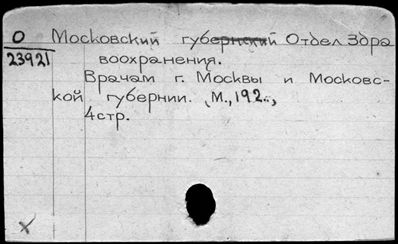 О Московский губернский Отдел Здра
23921 воохранения.
Врачам г. Москвы и Московс-
кой губернии. М., 192..,
4стр.
х